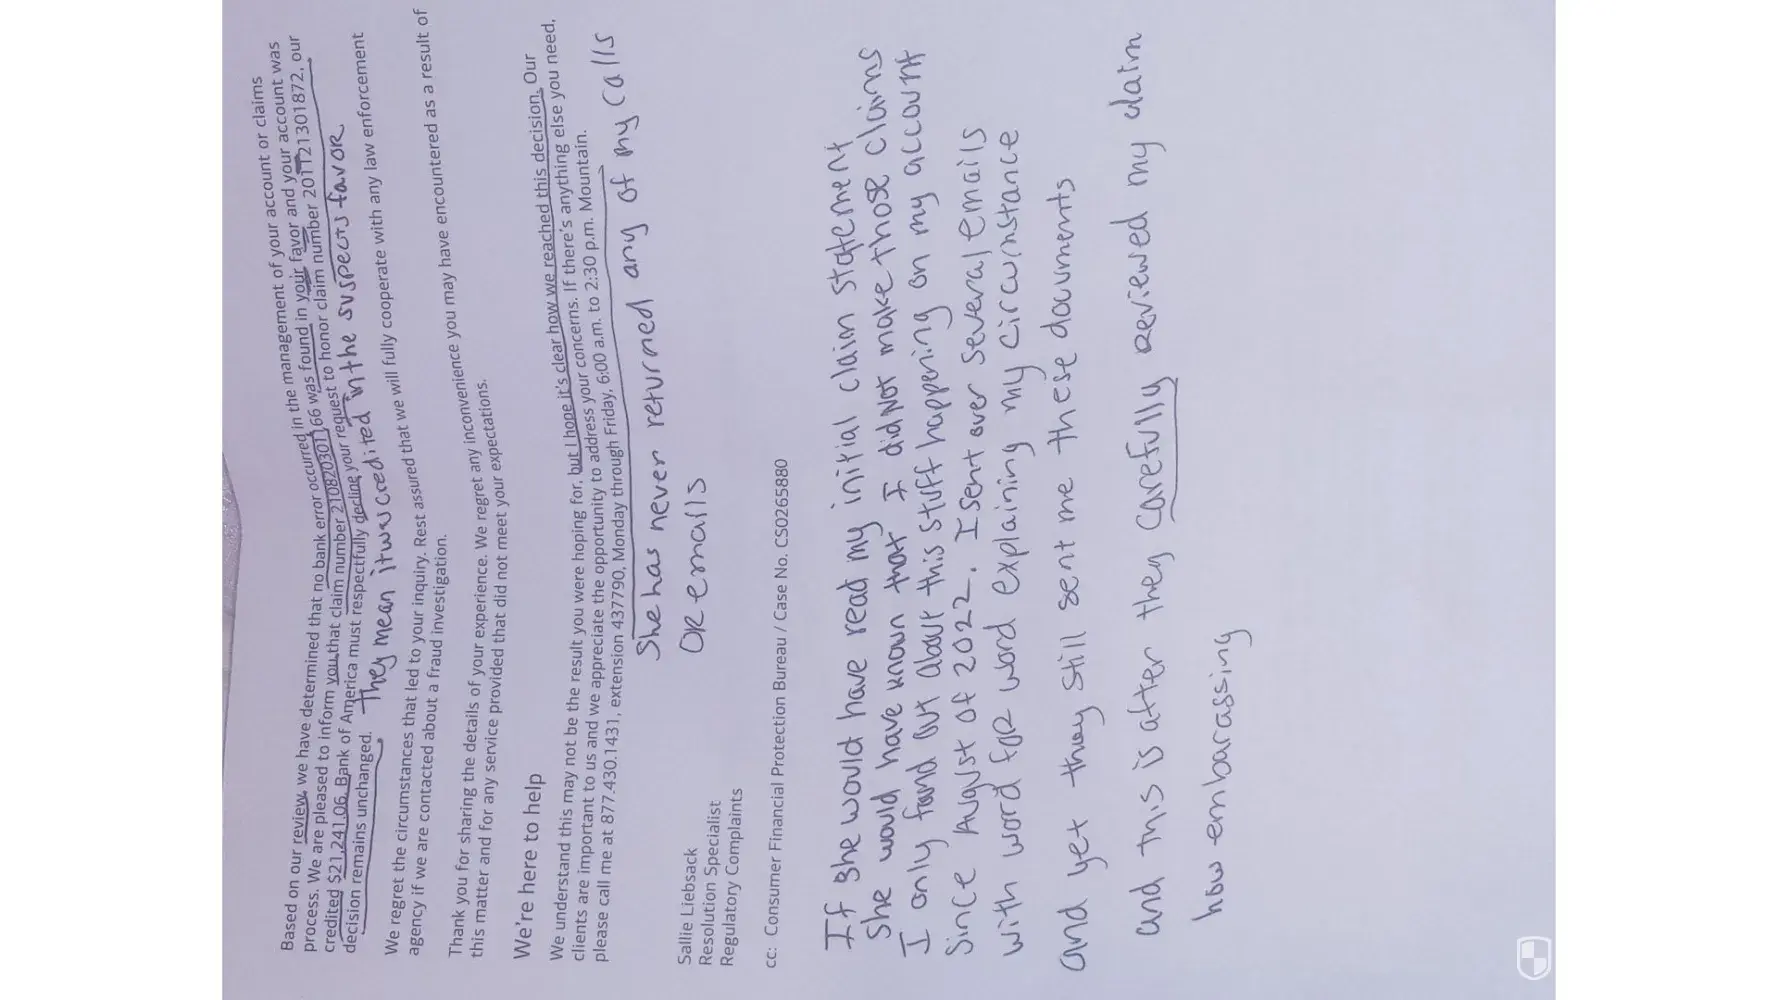 Based on our review, we have determined that no bank error occurred in the management of your account or claims
process. We are pleased to inform you that claim number 210820301166 was found in your favor and your account was
credited $21,241.06. Bank of America must respectfully decline your request to honor claim number 201121301872, our
decision remains unchanged. They mean it was credited in the suspects favor
We regret the circumstances that led to your inquiry. Rest assured that we will fully cooperate with any law enforcement
agency if we are contacted about a fraud investigation.
Thank you for sharing the details of your experience. We regret any inconvenience you may have encountered as a result of
this matter and for any service provided that did not meet your expectations.
We're here to help
We understand this may not be the result you were hoping for, but I hope it's clear how we reached this decision. Our
clients are important to us and we appreciate the opportunity to address your concerns. If there's anything else you need,
please call me at 877.430.1431, extension 437790, Monday through Friday, 6:00 a.m. to 2:30 p.m. Mountain.
She has never returned any of my calls
OR emails
Sallie Liebsack
Resolution Specialist
Regulatory Complaints
cc: Consumer Financial Protection Bureau / Case No. CS0265880
If She would have read my initial claim statement
She would have known that I did Not make those claims
I only found out about this stuff happening on my account
Since August of 2022. I sent over several emails
with word for word explaining my circumstance
and yet they still sent me these documents
and this is after they carefully reviewed my claim
how embarassing